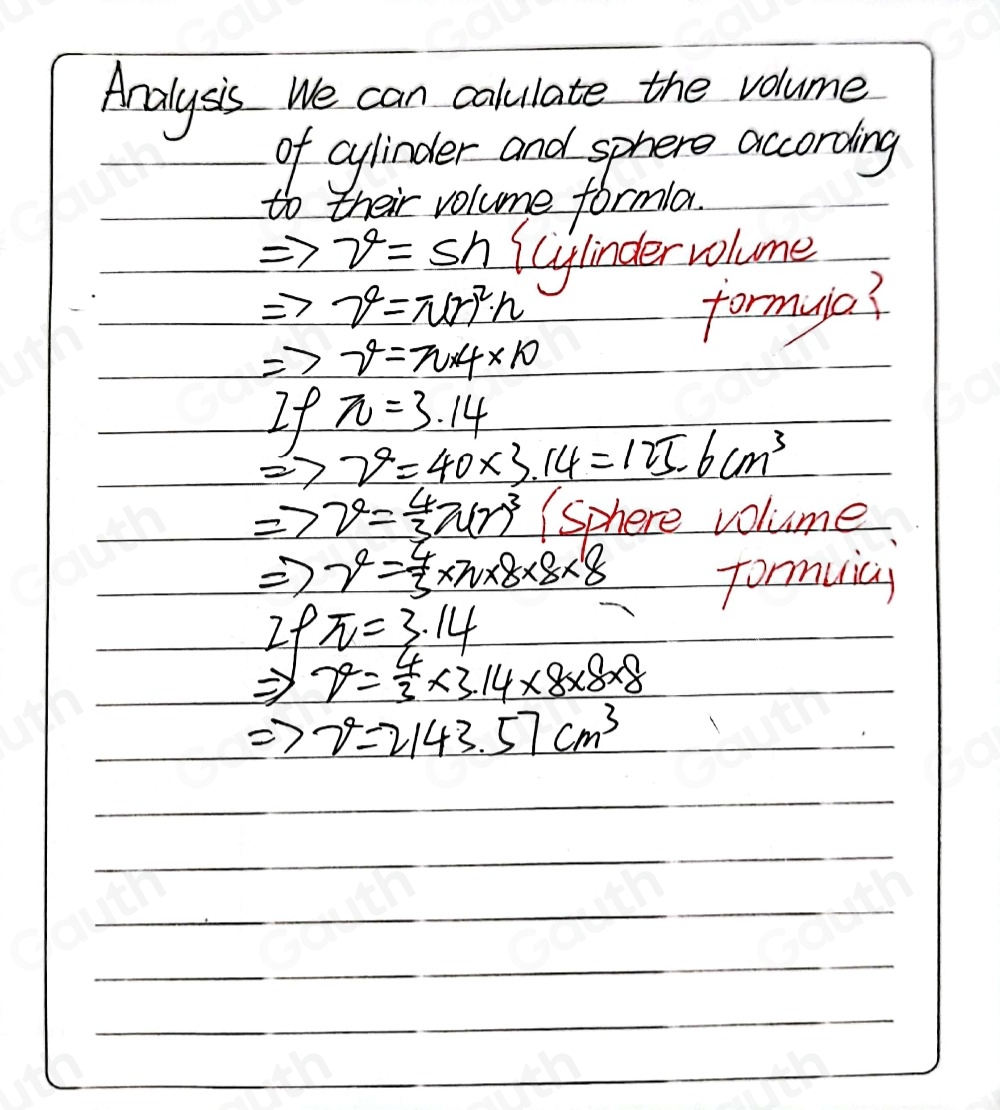 Analysis We can calulate the volume
of cylinder and sphere according
to their volume formla.
=> V = sh {Cylinder volume
=> V = π(r)²·h formula}
=> V = π×4×10
If π = 3.14
=> V = 40×3.14 = 125.6 cm³
=> V = 4/3 π(r)³ {Sphere volume
=> V = 4/3 ×π×8×8×8 formula}
If π = 3.14
=> V = 4/3 ×3.14×8×8×8
=> V = 2143.57 cm³
Gauth